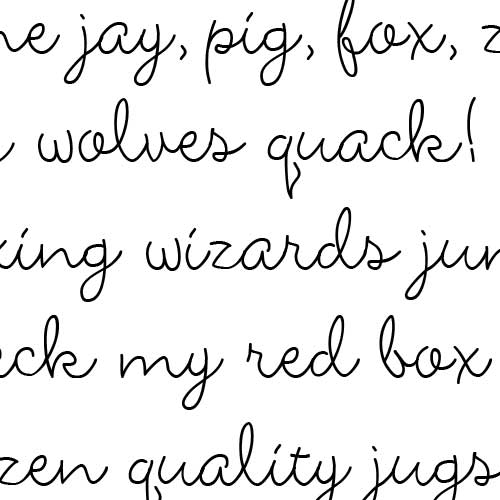 ne jay, pig, fox, z
wolves quack!
xing wizards jun
eck my red box
zen quality jugs